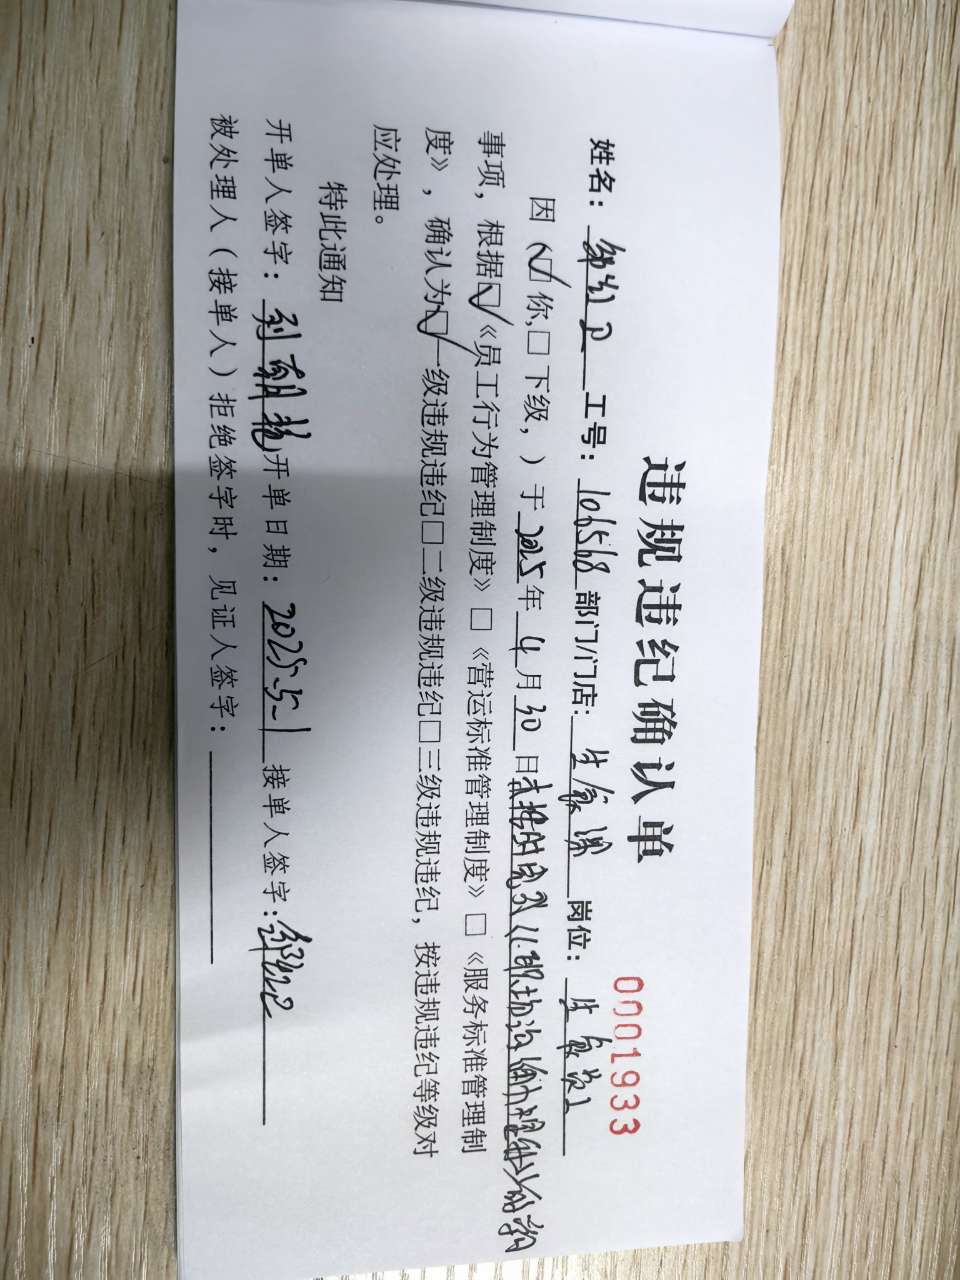 违规违纪确认单
0001933
姓名： 工号：106568 部门/门店：生鲜课 岗位：生鲜员工
因（☑你，□下级，）于2025年4月30日
事项，根据☑《员工行为管理制度》□《营运标准管理制度》□《服务标准管理制
度》，确认为☑一级违规违纪□二级违规违纪□三级违规违纪，按违规违纪等级对
应处理。
特此通知
开单人签字： 开单日期：2025-5-1 接单人签字：
被处理人（接单人）拒绝签字时，见证人签字：